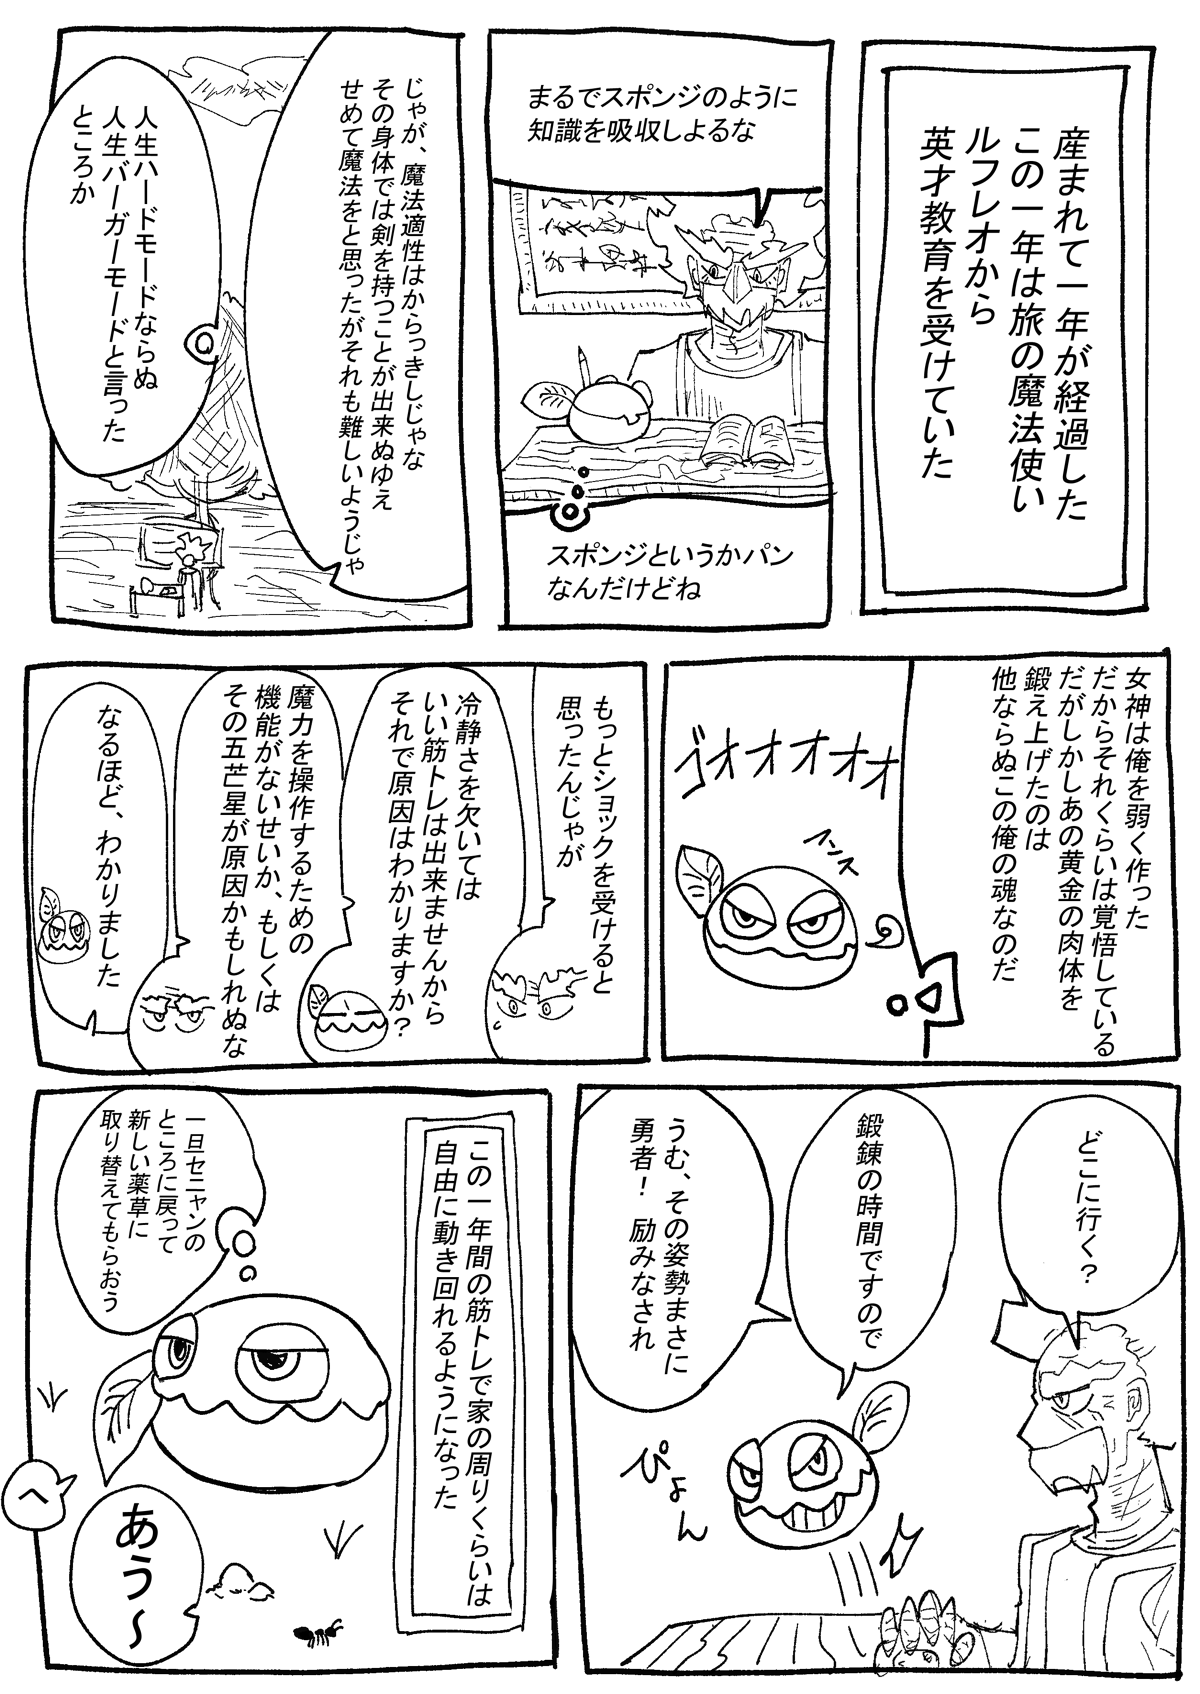 産まれて一年が経過した
この一年は旅の魔法使い
ルフレオから
英才教育を受けていた
まるでスポンジのように
知識を吸収しよるな
スポンジというかパン
なんだけどね
じゃが、魔法適性はからっきしじゃな
その身体では剣を持つことが出来ぬゆえ
せめて魔法をと思ったがそれも難しいようじゃ
人生ハードモードならぬ
人生バーガーモードと言った
ところか
女神は俺を弱く作った
だからそれくらいは覚悟している
だがしかしあの黄金の肉体を
鍛え上げたのは
他ならぬこの俺の魂なのだ
ゴオオオオオ
フンス
もっとショックを受けると
思ったんじゃが
冷静さを欠いては
いい筋トレは出来ませんから
それで原因はわかりますか?
魔力を操作するための
機能がないせいか、もしくは
その五芒星が原因かもしれぬな
なるほど、わかりました
どこに行く?
鍛錬の時間ですので
うむ、その姿勢まさに
勇者! 励みなされ
ぴょん
この一年間の筋トレで家の周りくらいは
自由に動き回れるようになった
一旦セニャンの
ところに戻って
新しい薬草に
取り替えてもらおう
あう~
へ